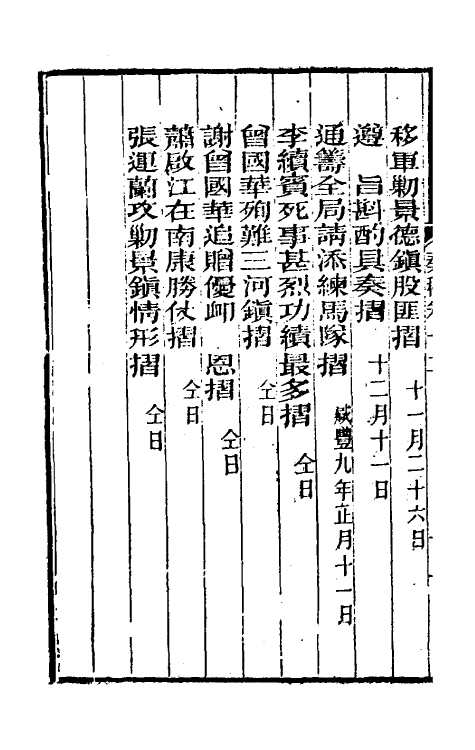 移軍勦景德鎭股匪摺 十一月二十六日
遵 旨斟酌具奏摺 十二月十一日
通籌全局請添練馬隊摺 咸豐九年正月十一日
李續賓死事甚烈功績最多摺 仝日
曾國華殉難三河鎭摺 仝日
謝曾國華追贈優卹 恩摺 仝日
蕭啟江在南康勝仗摺 仝日
張運蘭攻勦景鎭情形摺 仝日